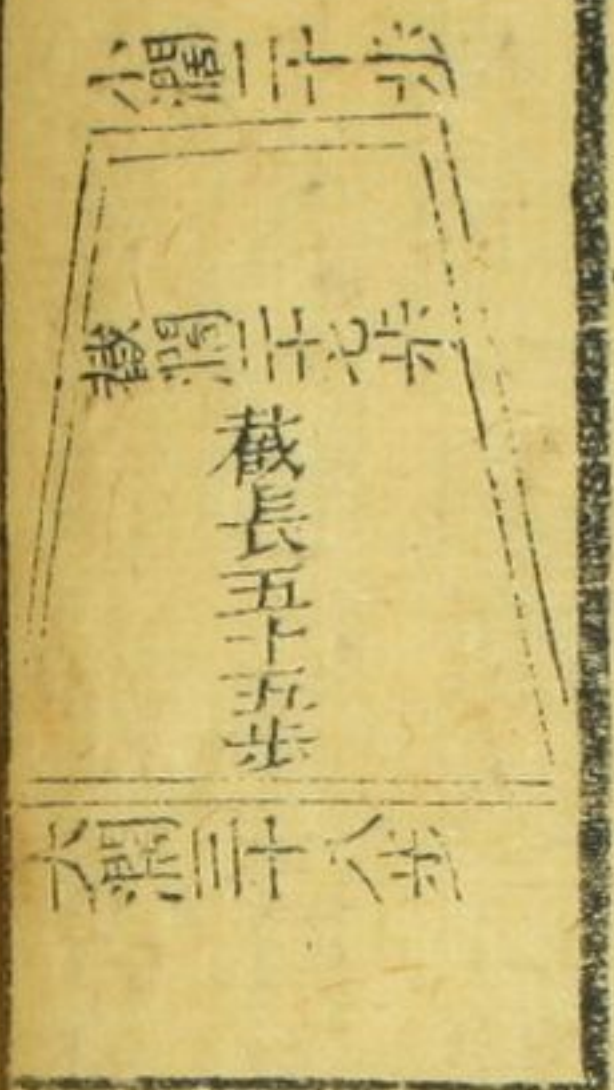 小濶二十步
截濶二十七步
截長五十五步
大濶三十八步